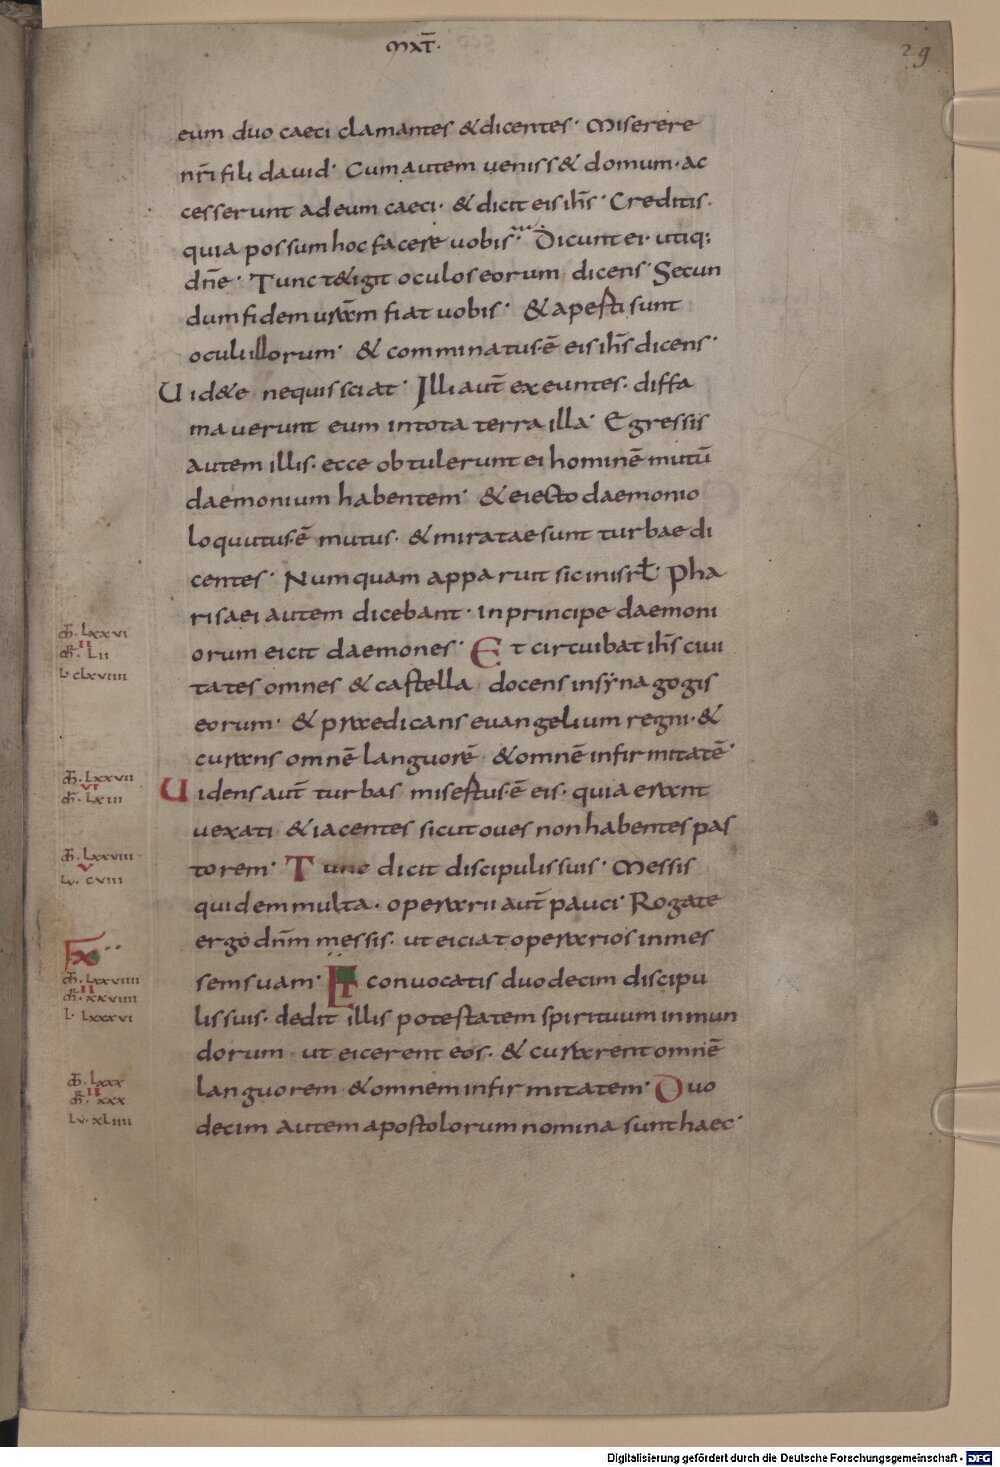 MAT̄·
29
eum duo caeci clamantes &dicentes· Miserere
nr̄i fili dauid· Cum autem ueniss& domum· ac
cesserunt ad eum caeci· & dicit eis ih̄s· Creditis·
quia possum hoc facere uobis· Dicunt ei· utiq;
dn̄e· Tunc t&igit oculos eorum dicens· Secun
dum fidem ur̄am fiat uobis· & aperti sunt
oculi illorum· & comminatus·ē eis ih̄s dicens·
Uid&e nequis sciat· Illi aut̄ exeuntes· diffa
mauerunt eum in tota terra illa· Egressis
autem illis· ecce obtulerunt ei hominē mutū
daemonium habentem· & eiecto daemonio
loquutus·ē mutus· & miratae sunt turbae di
centes· Numquam apparuit sic in isrł· Pha
risaei autem dicebant· in principe daemoni
orum eicit daemones· Et circuibat ih̄s ciui
tates omnes & castella docens in synagogis
eorum· & praedicans euangelium regni· &
curans omnē languorē & omnē infirmitatē·
Uidens aut̄ turbas misertus·ē eis· quia erant
uexati & iacentes sicut oues non habentes pas
torem· Tunc dicit discipulis suis· Messis
quidem multa· operarii aut̄ pauci· Rogate
ergo dn̄m messis· ut eiciat operarios in mes
sem suam· Et conuocatis duodecim discipu
lis suis· dedit illis potestatem spirituum inmun
dorum· ut eicerent eos· & curarent omnē
languorem & omnem infirmitatem· Duo
decim autem apostolorum nomina sunt haec·
LXXVI
II
LII
L· CLXVIIII
LXXVII
VI
LXIII
LXXVIII
V
LU· CVIII
X
LXXVIIII
II
XXVIIII
L· LXXXVI
LXXX
II
XXX
LU· XLIIII
Digitalisierung gefördert durch die Deutsche Forschungsgemeinschaft - DFG